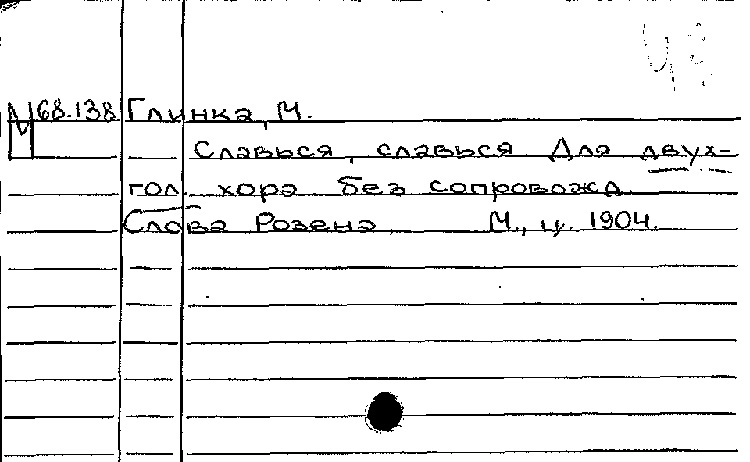 М68.138 Глинка, М.
Славься, славься Для двух-
гол. хора без сопровожд
Слова Розена М., ц. 1904.